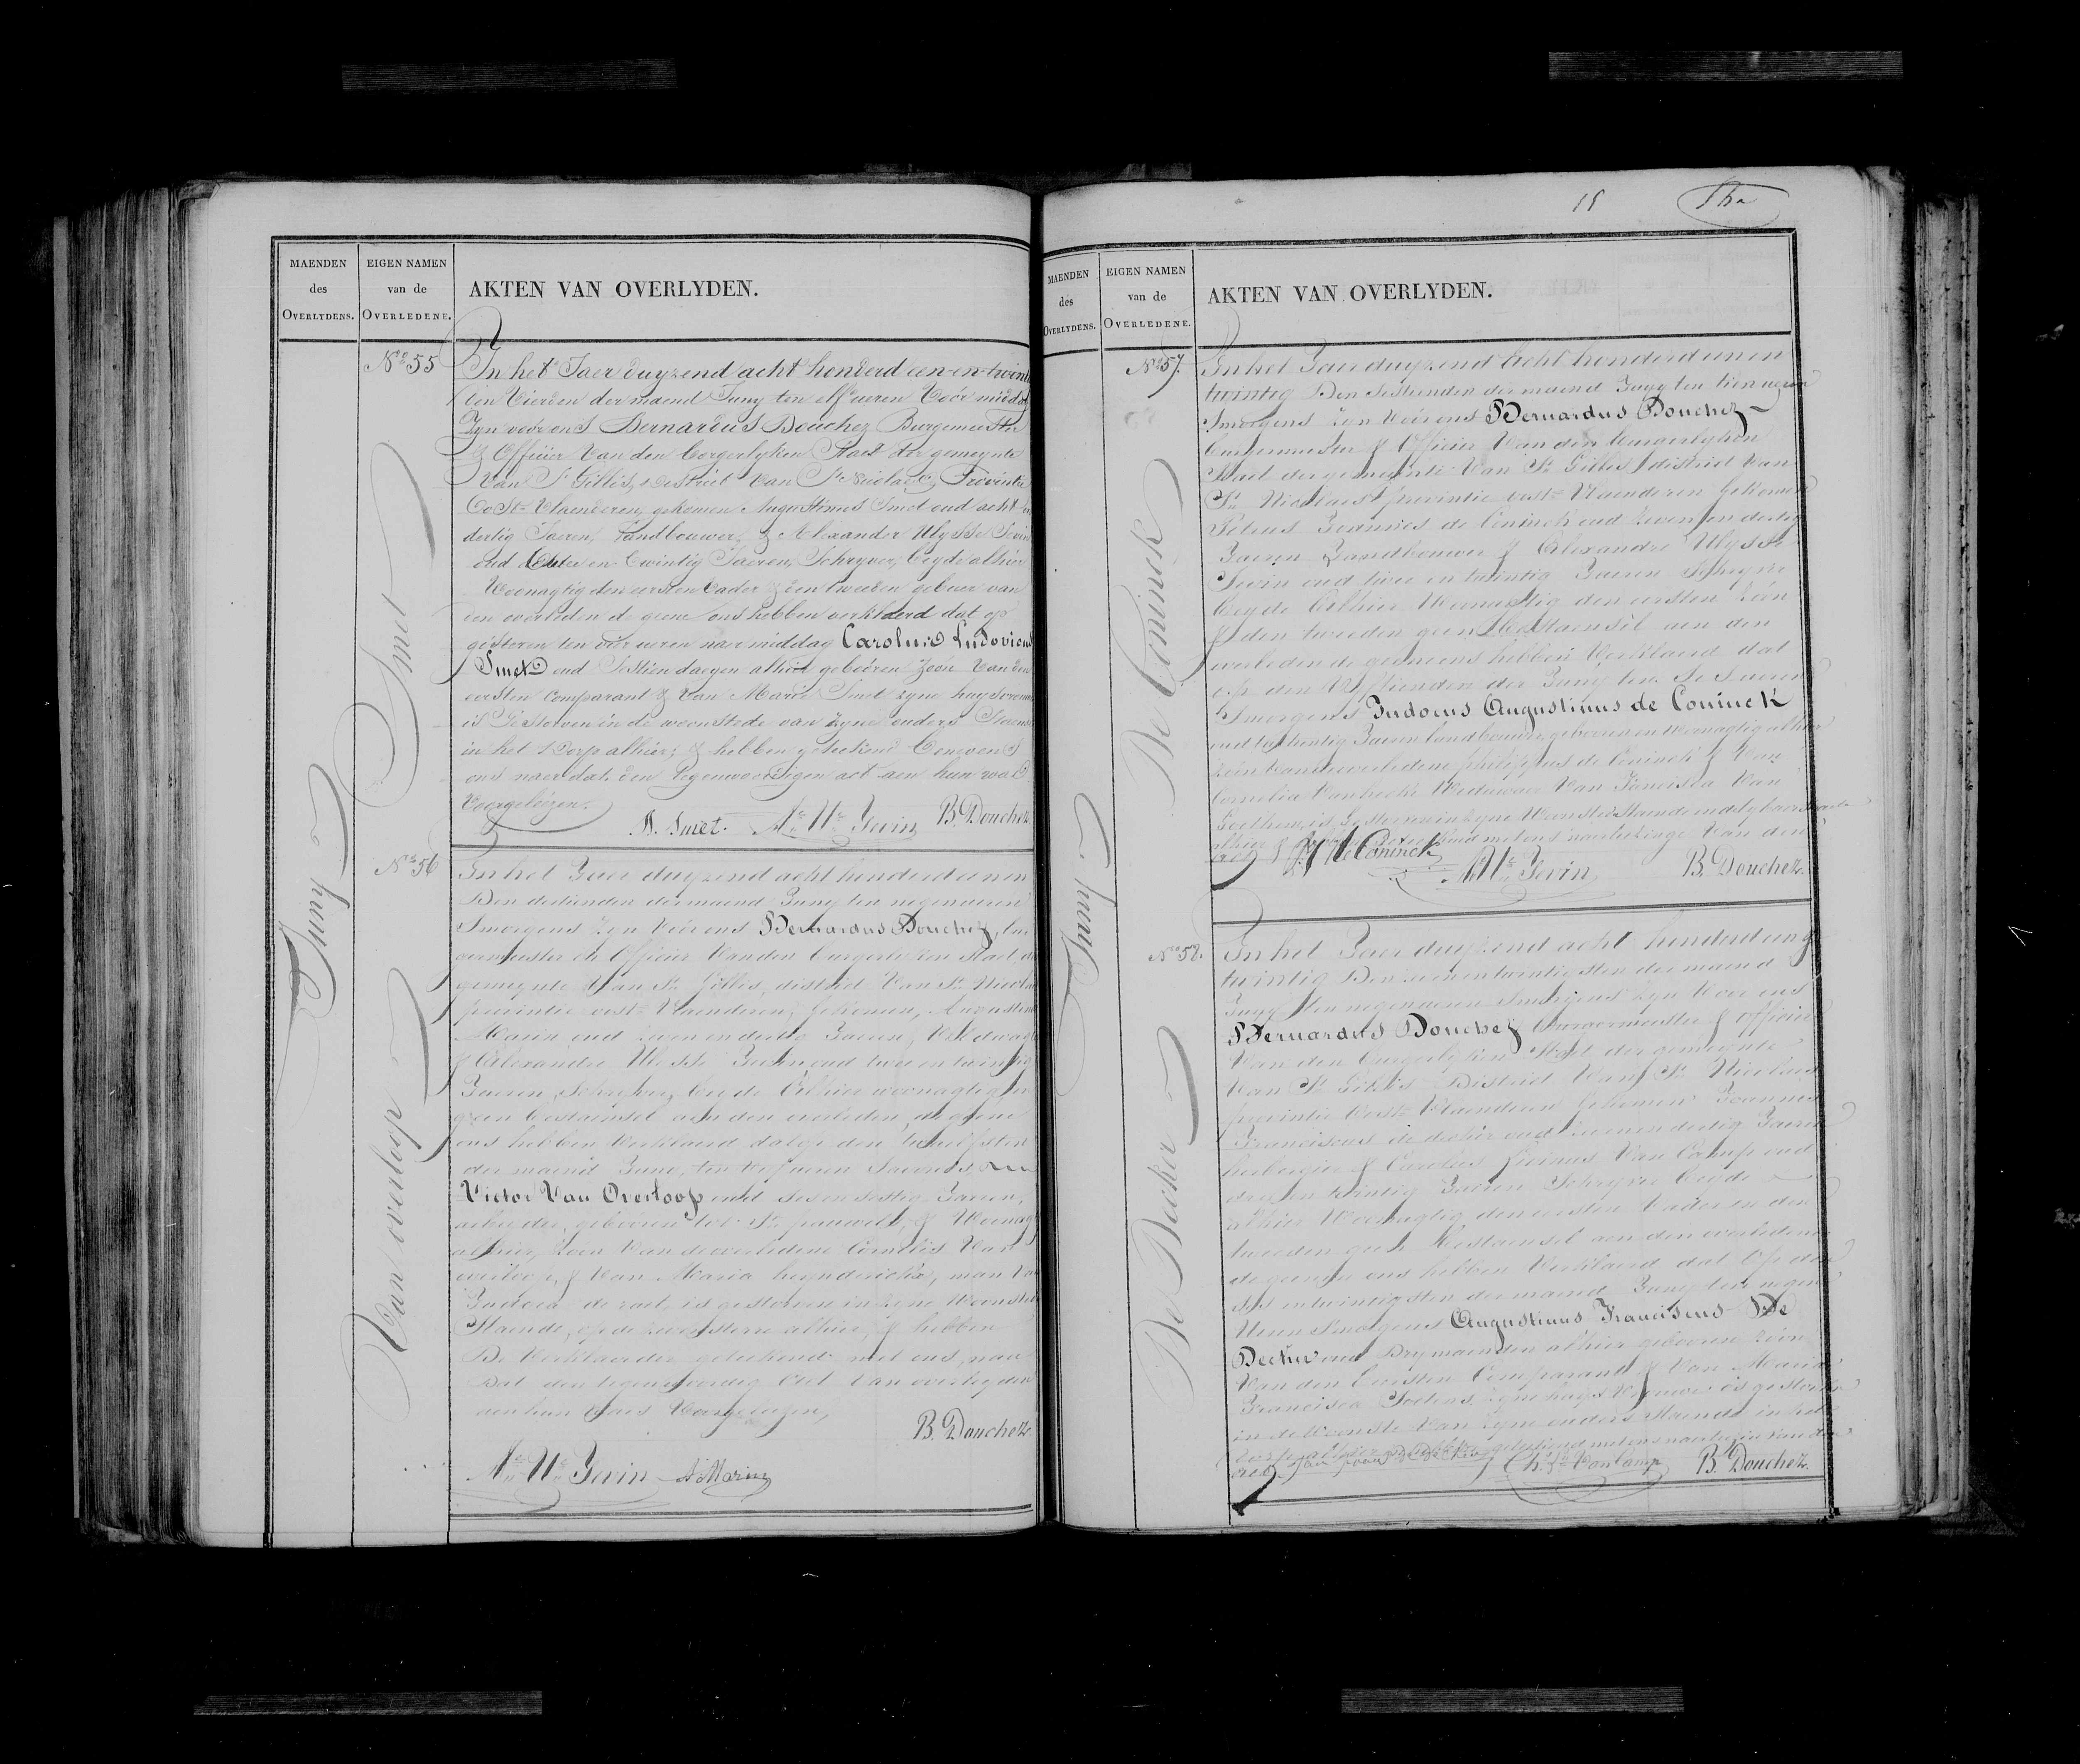 MAENDEN
des
OVERLYDENS.
EIGEN NAMEN
van de
OVERLEDENE.
AKTEN VAN OVERLYDEN.
Juny
No. 55
Smet
In het Jaer duyzend acht honderd een-en-twint
den Vierden der maend Juny ten elf ueren Voor midd
Zyn voor ons Bernardus Douchez Burgemeester
& Officier Van den borgerlyken Staet der gemeynte
Van St. Gillis, district Van St. Nicolaes, Provintie
Oost-Vlaenderen, gekomen Augustinus Smet oud acht
dertig Jaeren, Landbouwer, & Alexander Ulysse Jevin
oud twee en twintig Jaeren, Schryver, beyde alhier
Woonagtig den eersten Vader & den tweeden gebuer van
den overleden de geene ons hebben verklaerd dat op
gisteren ten vier ueren naer middag Carolus Ludovicus
Smet oud sestien daegen alhier gebooren zoon Van den
eersten Comparant & Van Maria Smet zyne huysvrouw
is Gestorven in de woonstede van zyne ouders Staende
in het Dorp alhier; & hebben geteekend benevens
ons naer dat den tegenwoordigen act aen hun was
Voorgelezen.
A. Smet. Alre Ue Jevin B. Douchez
No. 56
Van overloop
In het Jaer duyzend acht honderd een en
Den dertienden der maend Juny ten negen ueren
Smorgens Zyn Voor ons Bernardus Douchez, bur
germeester en Officier Van den burgerlyken Staet de
gemeynte Van St. Gillis, district Van St. Nicola
provintie oost-Vlaenderen, gekomen, Augustin
Marin oud zeven en dertig Jaeren, Veldwagt
& Alexander Ulysse Jevin oud twee en twintig
Jaeren, Schryver, beyde Alhier woonagtig en
geen bestaensel aen den overleden, de geene
ons hebben Verklaerd dat op den twelfsten
der maend Juny, ten vyf ueren Savonds,
Victor Van Overloop oud ses en sestig Jaeren,
arbeyder, gebooren tot St. pauwels, & Woonag
alhier, zoon Van de overledene Cornelis Van
overloop, & Van Maria heynderickx, man Va
Judoca de rael, is gestorven in zyne Woonstede
Staende, op de zevensterre alhier, & hebben
De Verklaerders geteekend met ons, naer
Dat den tegenwoordig Act Van overlyden
aen hun Waes Voorgelezen,
B. Douchez
Alre Ue Jevin A. Marin
15
MAENDEN
des
OVERLYDENS.
EIGEN NAMEN
van de
OVERLEDENE.
AKTEN VAN OVERLYDEN.
Juny
No. 57.
De Coninck
In het Jaer duyzend Acht honderd een en
twintig Den Sestienden der maend Juny ten tien ueren
Smorgens Zyn Voor ons Bernardus Douchez
burgemeester & Officier Van den burgerlyken
Staet der gemeynte Van St. Gillis, district Van
St. Nicolaes, provintie oost-Vlaenderen, gekomen
Petrus Joannes de Coninck oud zeven en dertig
Jaeren Landbouwer & Alexander Ulysse
Jevin oud twee en twintig Jaeren Schryver
beyde Alhier Woonagtig den eersten zoon
& den tweeden geen bestaensel aen den
overleden de geene ons hebben Verklaerd dat
op den Vyftienden der Juny ten ses ueren
Smorgens Judocus Augustinus de Coninck
oud tachentig Jaeren landbouwer gebooren en Woonagtig alhier
zoon Van de overledene philippus de Coninck & Van
Cornelia Vanhecke Weduwaer Van Francisca Van
Goethem, is gestorven in zyne Woonste Staende
alhier & hebben geteekend met ons naer lezinge Van den
act P. J. De Coninck Alre Ue Jevin B. Douchez
No. 58.
De Decker
In het Jaer duyzend acht honderd een &
twintig Den seven en twintigsten der maend
Juny ten negen ueren Smorgens zyn Voor ons
Bernardus Douchez burgermeester & officier
Van den burgerlyken Staet der gemeynte
Van St. Gillis District Van St. Nicolaes
provintie Oost-Vlaenderen gekomen Joannes
Franciscus de decker oud seven en dertig Jaeren
herbergier & Carolus Livinus Van Camp oud
dry en twintig Jaeren Schryver beyde
alhier Woonagtig den eersten Vader en den
tweeden geen bestaensel aen den overledene
de geene ons hebben Verklaerd dat op den
ses en twintigsten der maend Juny ten negen
Ueren Smorgens Augustinus Franciscus De
Decker oud Dry maenden alhier gebooren zoon
Van den Eersten Comparant & Van Maria
Francisca Poelens zyne huysvrouwe is gestorven
in de Woonste Van zyne ouders Staende in het
Dorp alhier en hebben geteekend met ons naer lezin Van den
act Jan frans De Decker Ch. L. Van Camp B. Douchez